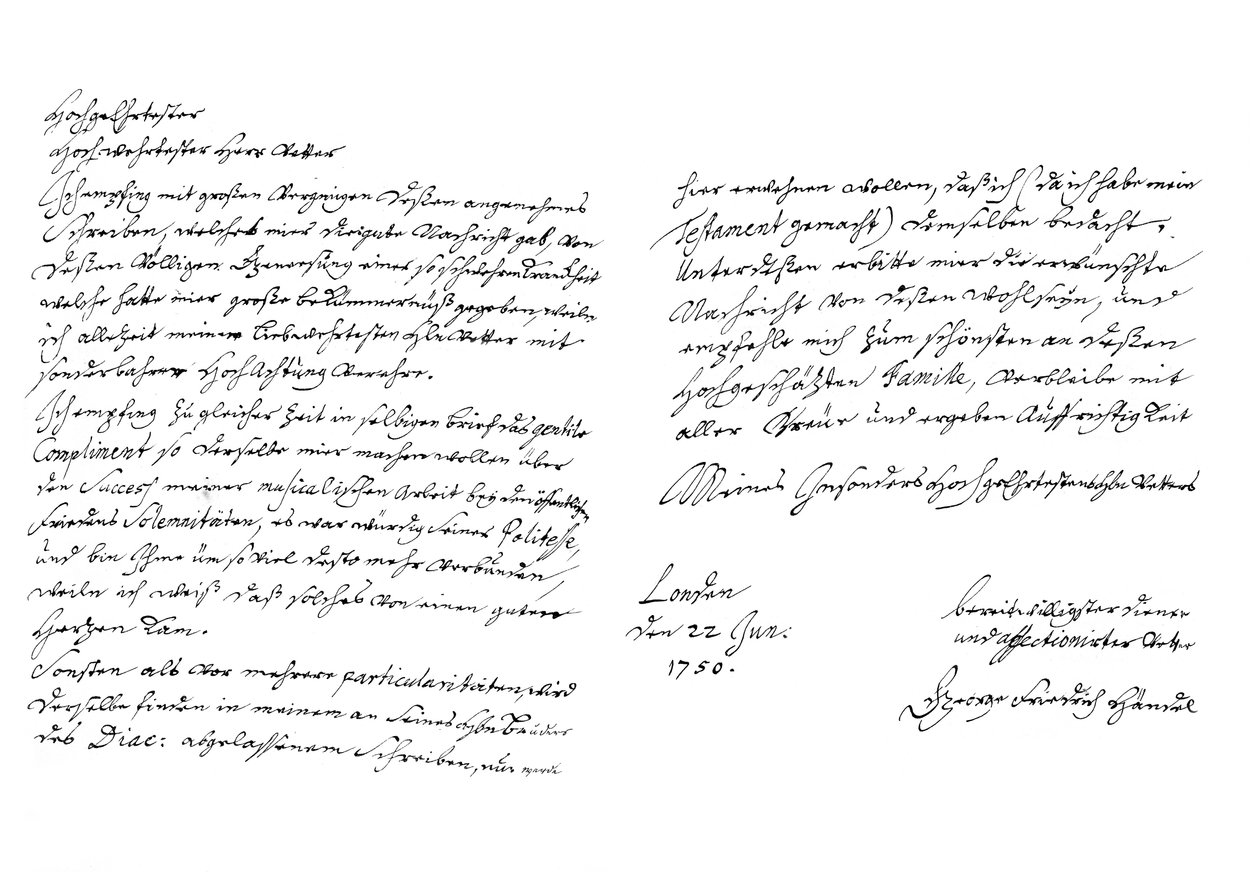 HochgeEhrtester
Hoch wehrtester Herr Vetter
Ich empfing mit großen Vergnügen deßen angenehmes
Schreiben, welches mier die gute Nachricht gab, von
deßen Völligen Genesung einer so schwehren Kranckheit
welche hatte mier große bekümmernüß gegeben, weiln
ich allezeit meinen liebwehrtesten HEn Vetter mit
sonderbahrer HochAchtüng Verehre.
Ich empfing zü gleicher Zeit in selbigen brief das gentile
Compliment so derselbe mier machen wollen über
den Success meiner musicalischen Arbeit beÿ den öffentlichen
Friedens Solemnitäten, es war würdig seiner Politesse,
und bin Ihme üm so viel desto mehr verbunden,
weiln ich weiß daß solches von einen guten
Hertzen kam.
Sonsten als vor mehrere particularitäten, wird
derselbe finden in meinem an seines HEn Brüders
des Diac: abgelassenem Schreiben, nur werde
hier erwehnen wollen, daß ich (da ich habe mein
Testament gemacht) demselben bedacht,
Unterdeßen erbitte mier die erwünschte
Nachricht von deßen wohlseÿn, und
empfehle mich züm schönsten an deßen
Hochgeschätzten Famille, verbleibe mit
aller Treüe und ergeben Aüffrichtigkeit
Meines Insonders HochgeEhrtesten HEn Vetters
Londen
den 22 Jun:
1750.
bereitwilligster diener
und affectionirter Vetter
George Friedrich Händel